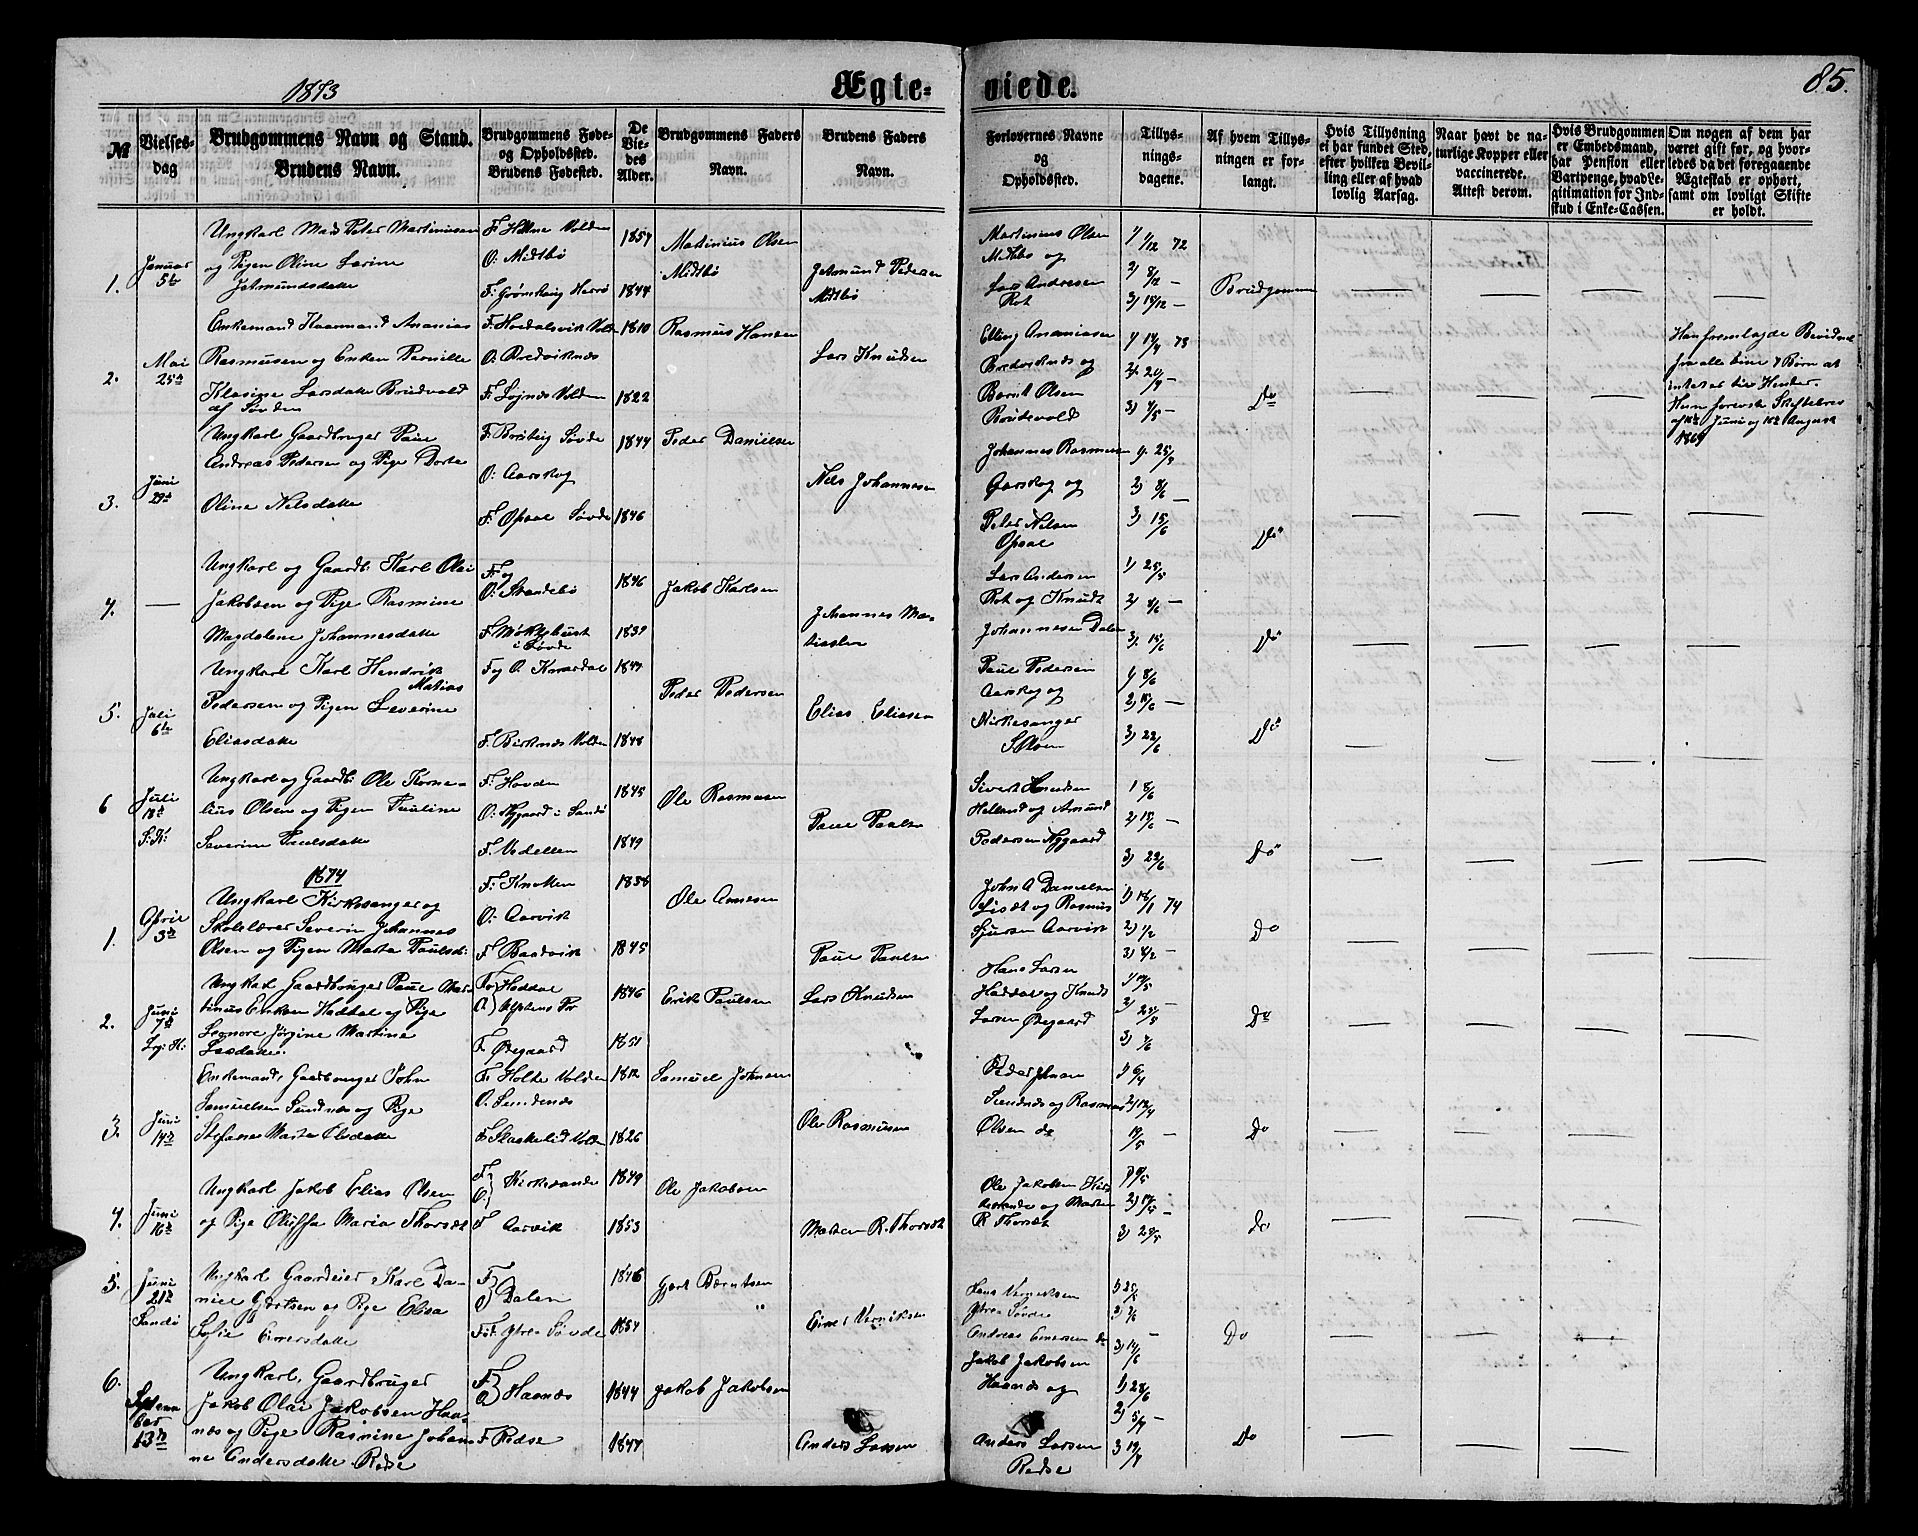 1873
Ægte-
viede.
85.
№
Vielses-
dag
Brudgommens Navn og Stand.
Brudens Navn.
Brudgommens Føde-
og Opholdssted.
Brudens Fødested.
De
Vie-
des
Alder.
Brudgommens Faders
Navn.
Brudens Faders
Navn.
Forlovernes Navne
og
Opholdssted.
Tillys-
nings-
dagene.
Af hvem Tillys-
ningen er for-
langt.
Hvis Tillysning
ei har fundet Sted,
efter hvilken Bevil-
ling eller af hvad
lovlig Aarsag.
Naar havt de na-
turlige Kopper eller
vaccinerede.
Attest derom.
Hvis Brudgommen
er Embedsmand,
har Pension eller
Vartpenge, hvad Le-
gitimation for Ind-
skud i Enke-Cassen.
Om nogen af dem har
været gift før, og hvor-
ledes da det foregaaende
Ægteskab er ophørt,
samt om lovligt Skifte
er holdt.
1.
Januar
5te
Ungkarl Mads Peter Martinusen
og Pigen Oline Larine
Jetmundsdatte
F: Volden
O: Midtbø
F: Herrø
1844
Martinius Olsen
Midtbø
Jetmund Pedersen
Midtbø
Martinius Olsen
Midtbø og
Lars Andresen
Rot
1) 1/12 72
2) 8/12 —
3) 15/12 —
Brudgommen
2.
Mai
25de
Enkemand Ananias
Rasmusen og Enken Pernille
Klasine Larsdatte Brudevold
af Søvden
O: Bredviknæs
F: Løjnæs Volden
1810
1822
Rasmus Hansen
Lars Knudsen
Elling Ananiasen
Bredviknæs og
Bernt Olsen
Brudevold
Do
Han fremlagde Bevidnelse
fra alle sine 7 Børn at
intet er til Hinder.
Hun foreviste Skiftebrev
Juni og August
1869
3.
Juni
29de
Ungkarl Gaardbruger Paul
Andreas Pedersen og Pige Dorte
Oline Nilsdatte
O: Aarskog
F: Opsal Søvde
1844
1846
Peder Danielsen
Nils Johannesen
Johannes Rasmusen
Aarskog og
Peter Nilsen
Opsal
1) 25/5
2) 8/6 —
3) 15/6
Do
4.
Ungkarl og Gaardb: Karl Olai
Jakobsen og Pige Rasmine
Magdalene Johannesdatte
F: og
O: Strandebø
F: Møklebust
i Søvde
1846
1839
Jakob Karlsen
Johannes Ma-
Lars Andersen
Rot og Knudt
Johannesen Dalen
1) 25/5
2) 8/6 —
3) 15/6
Do
5.
Juli
6te
Ungkarl Karl Hendrik
Matias
Pedersen og Pigen Severine
Eliasdatte
F: og O:
F: Birknæs Volden
1848
Peder Pedersen
Elias Eliasen
Paul Pedersen
Aarskog og
Kirkesanger
S Olsen
1) 8/6
2) 15/6 —
3) 22/6
Do
6
Juli
18de
S: K:
Ungkarl og Gaardb: Ole Korne-
lius Olsen og Pigen Pauline
Severine Paulsdatte
F: Hovden
O: Nygaard i Sandø
F: Vedellen
1845
1849
Ole Rasmusen
Paul Paulsen
Sivert Knudsen
Helland og Amund
Pedersen Nygaard
1 8/6
2) 15/6 —
3) 22/6
Do
1874
1.
April
3de
Ungkarl Kirkesanger og
Skolelærer Severin Johannes
Olsen og Pigen Marte Paulsd:
F: Knotten
O: Aarvik
F: Baadvik
1838
1845
Ole Annesen
Paul Paulsen
John A Danielsen
Liset og Rasmus
Sjursen Aarvik
1) 18/1 74
2) 1/2
3) 8/2 —
Do
2.
Juni
7de
Ungkarl Gaardbruger Paul Mar-
tinus Eriksen Haddal og Pige
Leonore Jørgine Martine
Larsdatte.
F: Haddal
F. Ødegaard
1846
1851
Erik Paulsen
Lars Knudsen
Hans Larsen
Haddal og Knudt
Larsen Ødegaard
Do
3.
Juni
14de
Enkemand, Gaardbruger John
Samuelsen Sundnæs og Pige
Marte Olsdatte
F: Holte Volden
O. Sundenæs
1812
1826
Samuel Johnsen
Ole Rasmusen
Sundnæs og Rasmus
Olsen do
Do
4.
Juni
16de
Ungkarl Jakob Elias Olsen
og Pige Oluffa Maria Thorsæt
F.
O. Kirkesande
F Aarvik
1849
1853
Ole Jakobsen
Morten R. Thorsæt
Ole Jakobsen Kirk
og Morten
R Thorsæt
Do
5.
Juni
21de
Sandø
Ungkarl Gaardeier Karl Da-
niel Gjertsen og Pige Elisa
Sofie Eimersdatte
F.
O Dalen
F: Ytre Søvde
1846
1854
Gjert Berntsen
Ytre Søvde
Andreas Do
Do
6.
Septem-
ber
13de
Ungkarl, Gaardbruger
Jakob Olai Jakobsen Haa-
næs og Pige Rasmine Johan-
ne Andersdatte Redse
F.
O. Haanæs
F. Redse
1844
1847
Jakob Jakobsen
Anders Larsen
Jakob Jakobsen
Haanæs og
Anders Larsen
Redse
1) 28/6
2) 5/7 —
Do